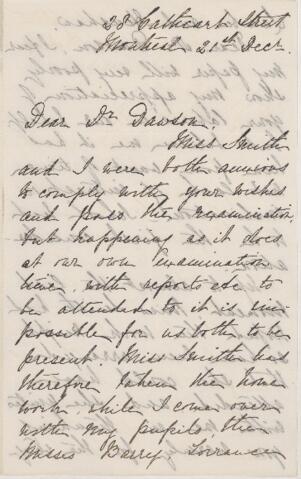 28 Cathcart Street
Montreal 21st Decr.
Dear Dr Dawson.
Miss Smith
and I were both anxious
to comply with your wishes
and pass the examination
but happening as it does
at our own Examination
time, with reports &c to
be attended to it is im
possible for us both to be
present. Miss Smith has
therefore taken the home
work, while I come over
with my pupils, the
Misses Barry Lorrance